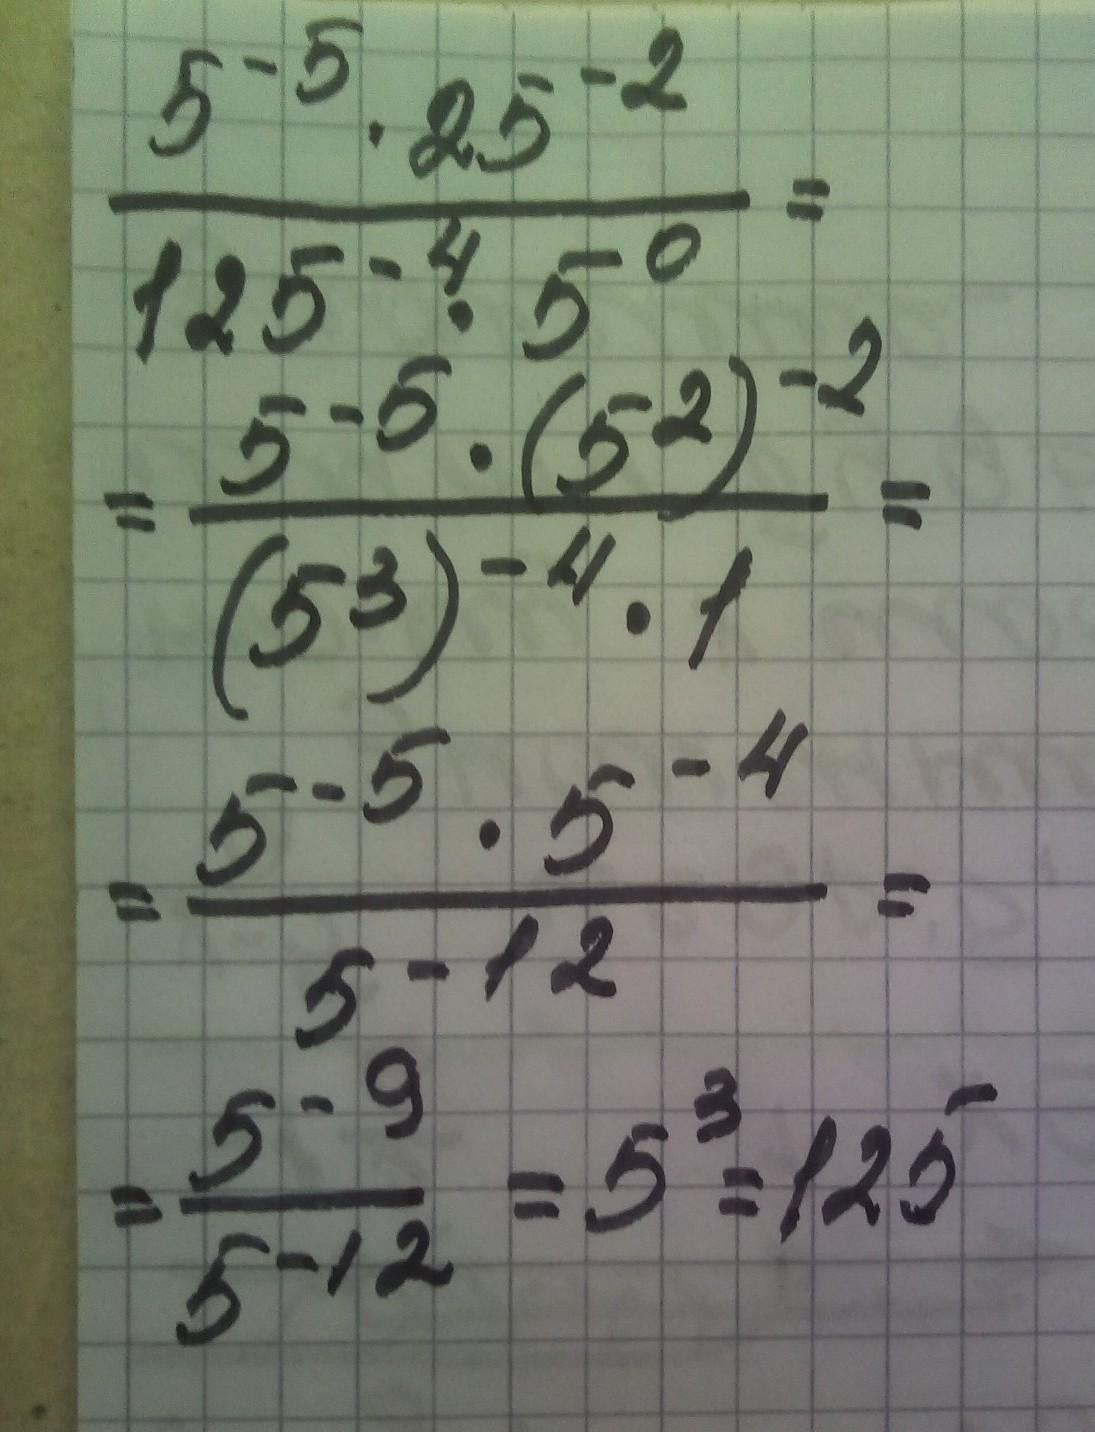 5⁻⁵ · 25⁻²
=
125⁻⁴ · 5⁰
= 5⁻⁵ · (5²)⁻² =
(5³)⁻⁴ · 1
= 5⁻⁵ · 5⁻⁴ =
5⁻¹²
= 5⁻⁹ = 5³ = 125
5⁻¹²